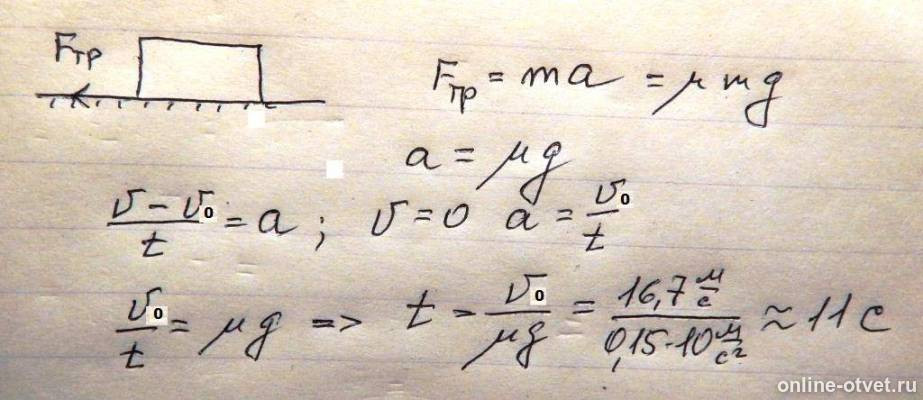 Fтр
Fтр = ma = μmg
a = μg
(v − v₀)/t = a ; v = 0 a = v₀/t
v₀/t = μg => t = v₀/μg = 16,7 м/с / 0,15·10 м/с² ≈ 11 с
online-otvet.ru